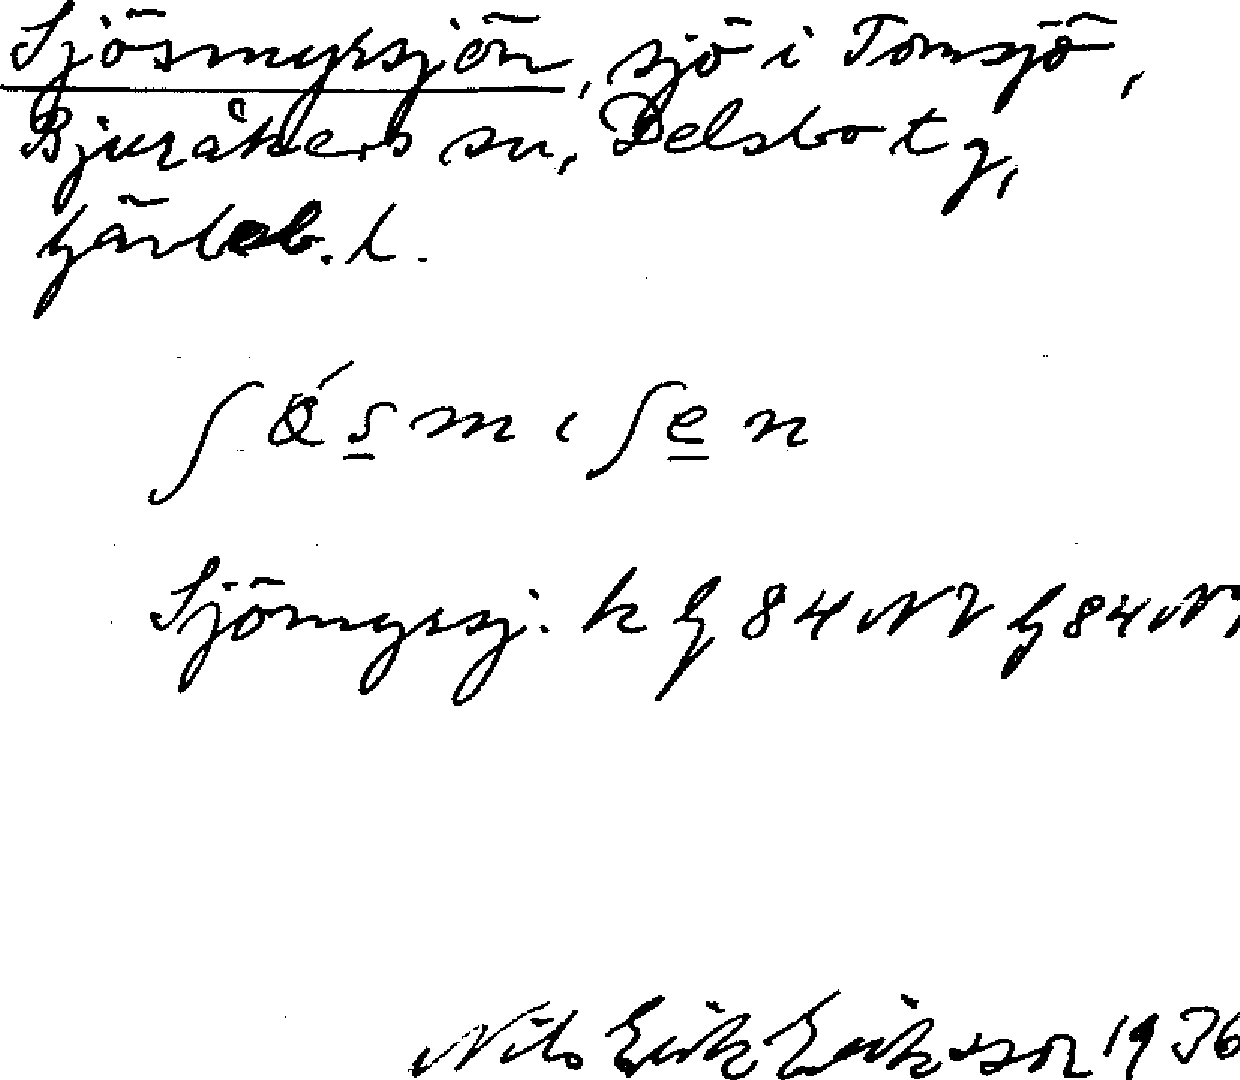 Sjösmyrsjön, sjö i Tomsjö,
Bjuråkers sn, Delsbo tg,
Gävleb. l.
Sjömyrsj. k G 84 NV G 84 NV
Nils Erik Eriksson 1936